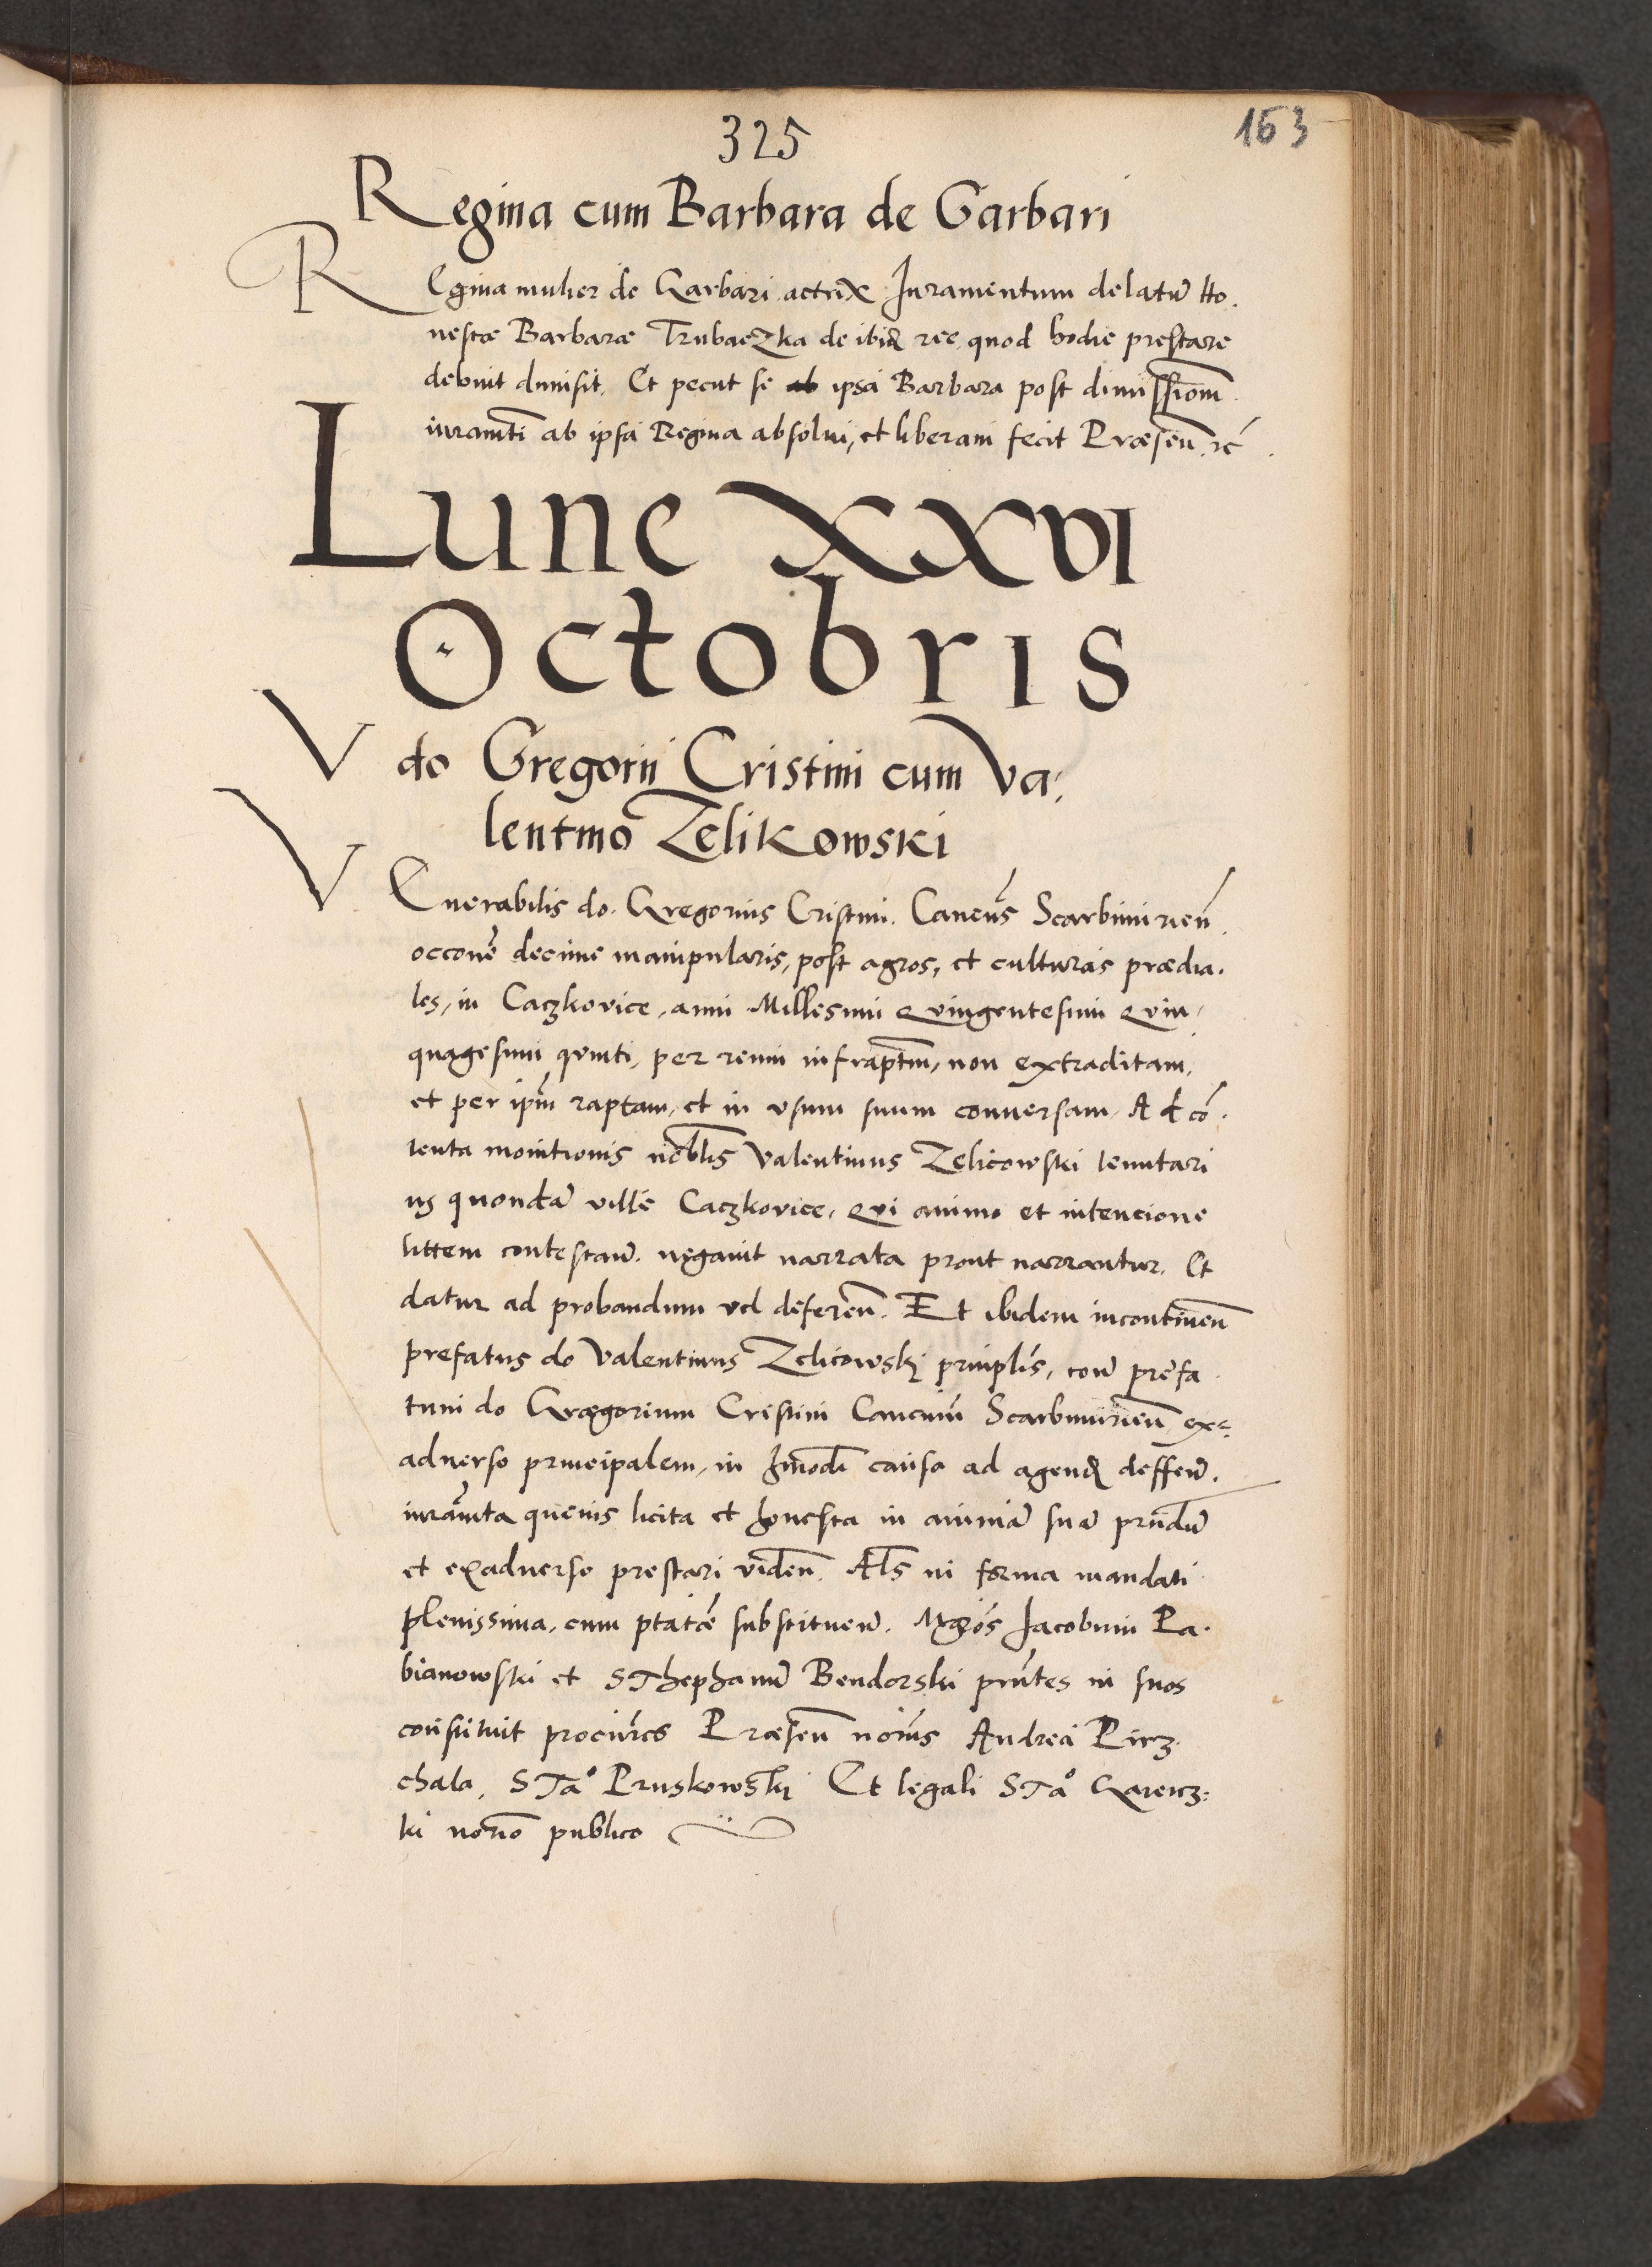 325
163
Regina cum Barbara de Garbari
REgina mulier de Garbari actrix Juramentum delatū Ho.
nestæ Barbaræ TrubaeZka de ibid ree, quod hodie prestare
debuit dimisit. Et petiit se ab ipsa Barbara post dimissioñ
iuramti ab ipsa Regina absolui, et liberam fecit Præsen. rc
Lune XXVI
Octobris
V do Gregorii Cristini cum Va,
lentino Zelikowski
VEnerabilis do. Gregorius Cristini. Cancus Scarbimirieñ.
occone decime manipularis, post agros, et culturas prædia.
les, in Caczkovice, anni Millesimi Quingentesimi Quin,
quagesimi quinti, per reum infraptm, non extraditam,
et per ipm raptam, et in usum suum conuersam, Ad cō.
tenta monitionis noblis Valentinus Zelicowski tenutari
us quondā ville Caczkovice, Qui animo et intencione
littem contestan. negauit narrata prout narrantur. Et
datur ad probandum vel deferen. Et ibidem incontinen
prefatus do Valentinus Zelicowski prinplis, con prefa
tum do Grægorium Cristini Cancum Scarbimirien ex=
aduerso principalem, in hmodi causa ad agend deffen.
iuramta queuis licita et honesta in animā suā prndum
et exaduerso prestari viden. Als in forma mandati
plenissima, cum ptate substituen. Mgros Jacobum Pa.
bianowski et SThephanū Bendorski prntes in suos
constituit procures Præsen noius Andrea Pirz.
chala, STao Pruskowski Et legali STao Garncz=
ki norio publico